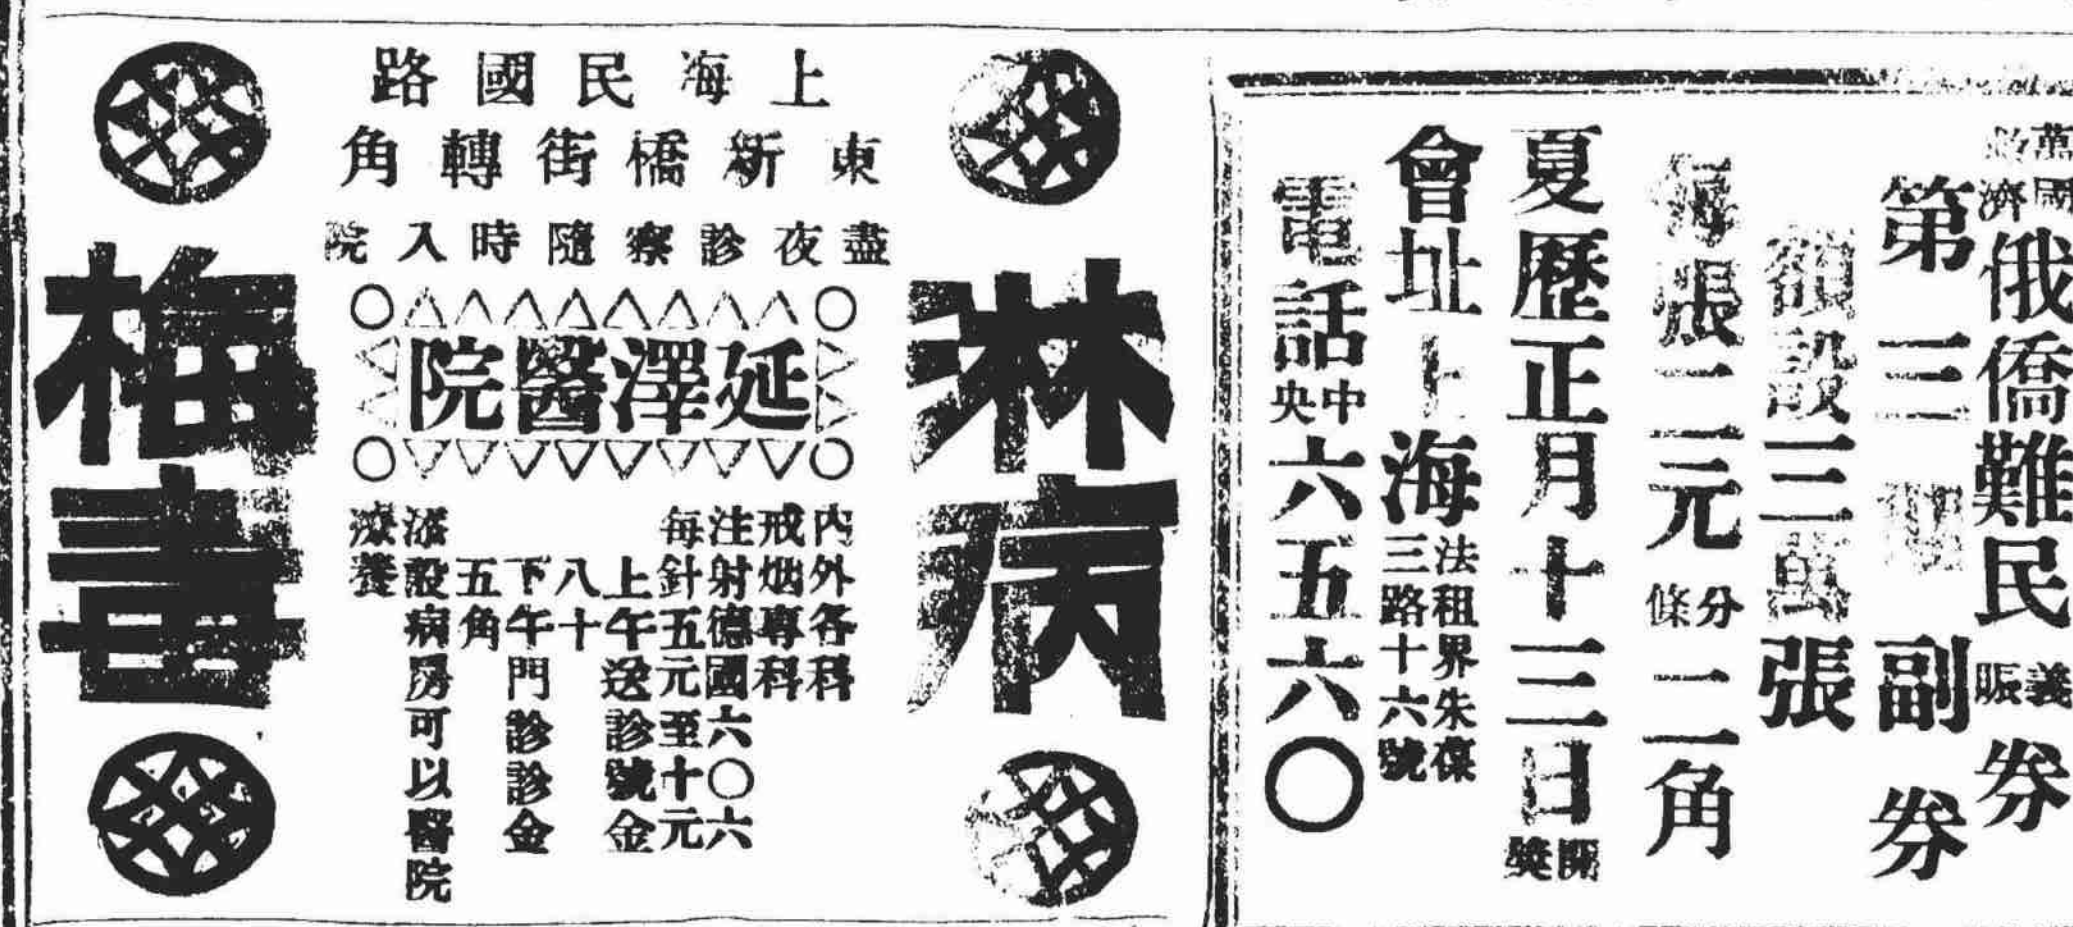 萬國救濟俄僑難民義賑券
第三期副券
額設三萬張
每張二元分條二角
夏歷正月十三日開獎
會址上海法租界朱葆三路十六號
電話中央六五六〇
淋病
上海民國路
東新橋街轉角
盡夜診察隨時入院
延澤醫院
內外各科
戒烟專科
注射德國六〇六
每針五元至十元
上午送診號金
八十
下午門診診金
五角
添設病房可以醫院
療養
梅毒